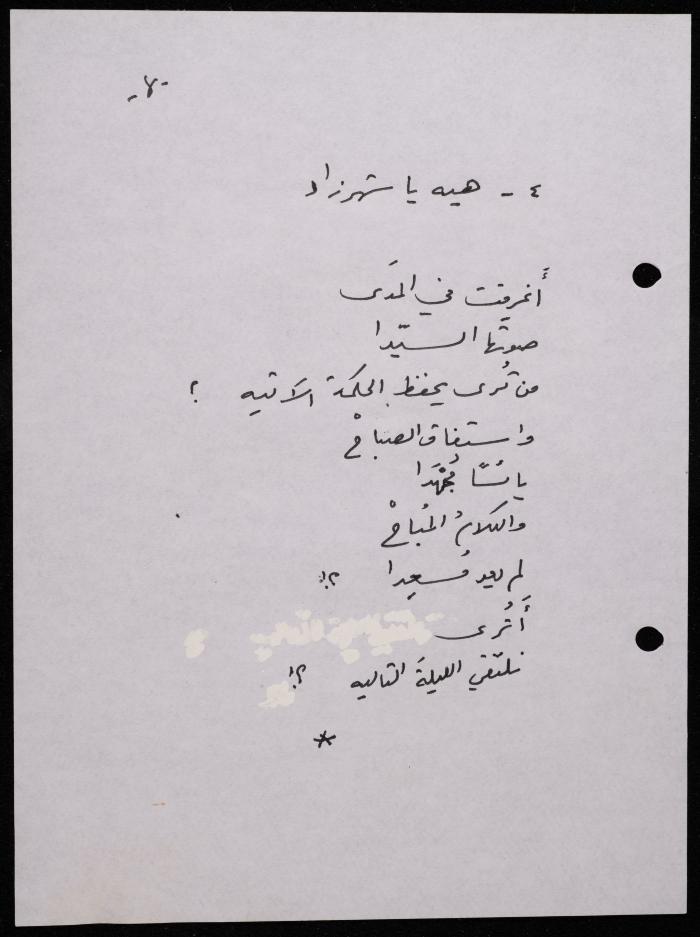 -٧-
٤ - هيه يا شهرزاد
أَغرقت في المدَى
صوتَها السيّدا
من تُرى يحفظ الحكمة الآتيه ؟
واستفاق الصباحْ
يائسًا مُجْهَدا
والكلامُ المُباحْ
لم يعد مُسعِدا ؟!
أَتُرى
نلتقي الليلةَ التاليه ؟!
*